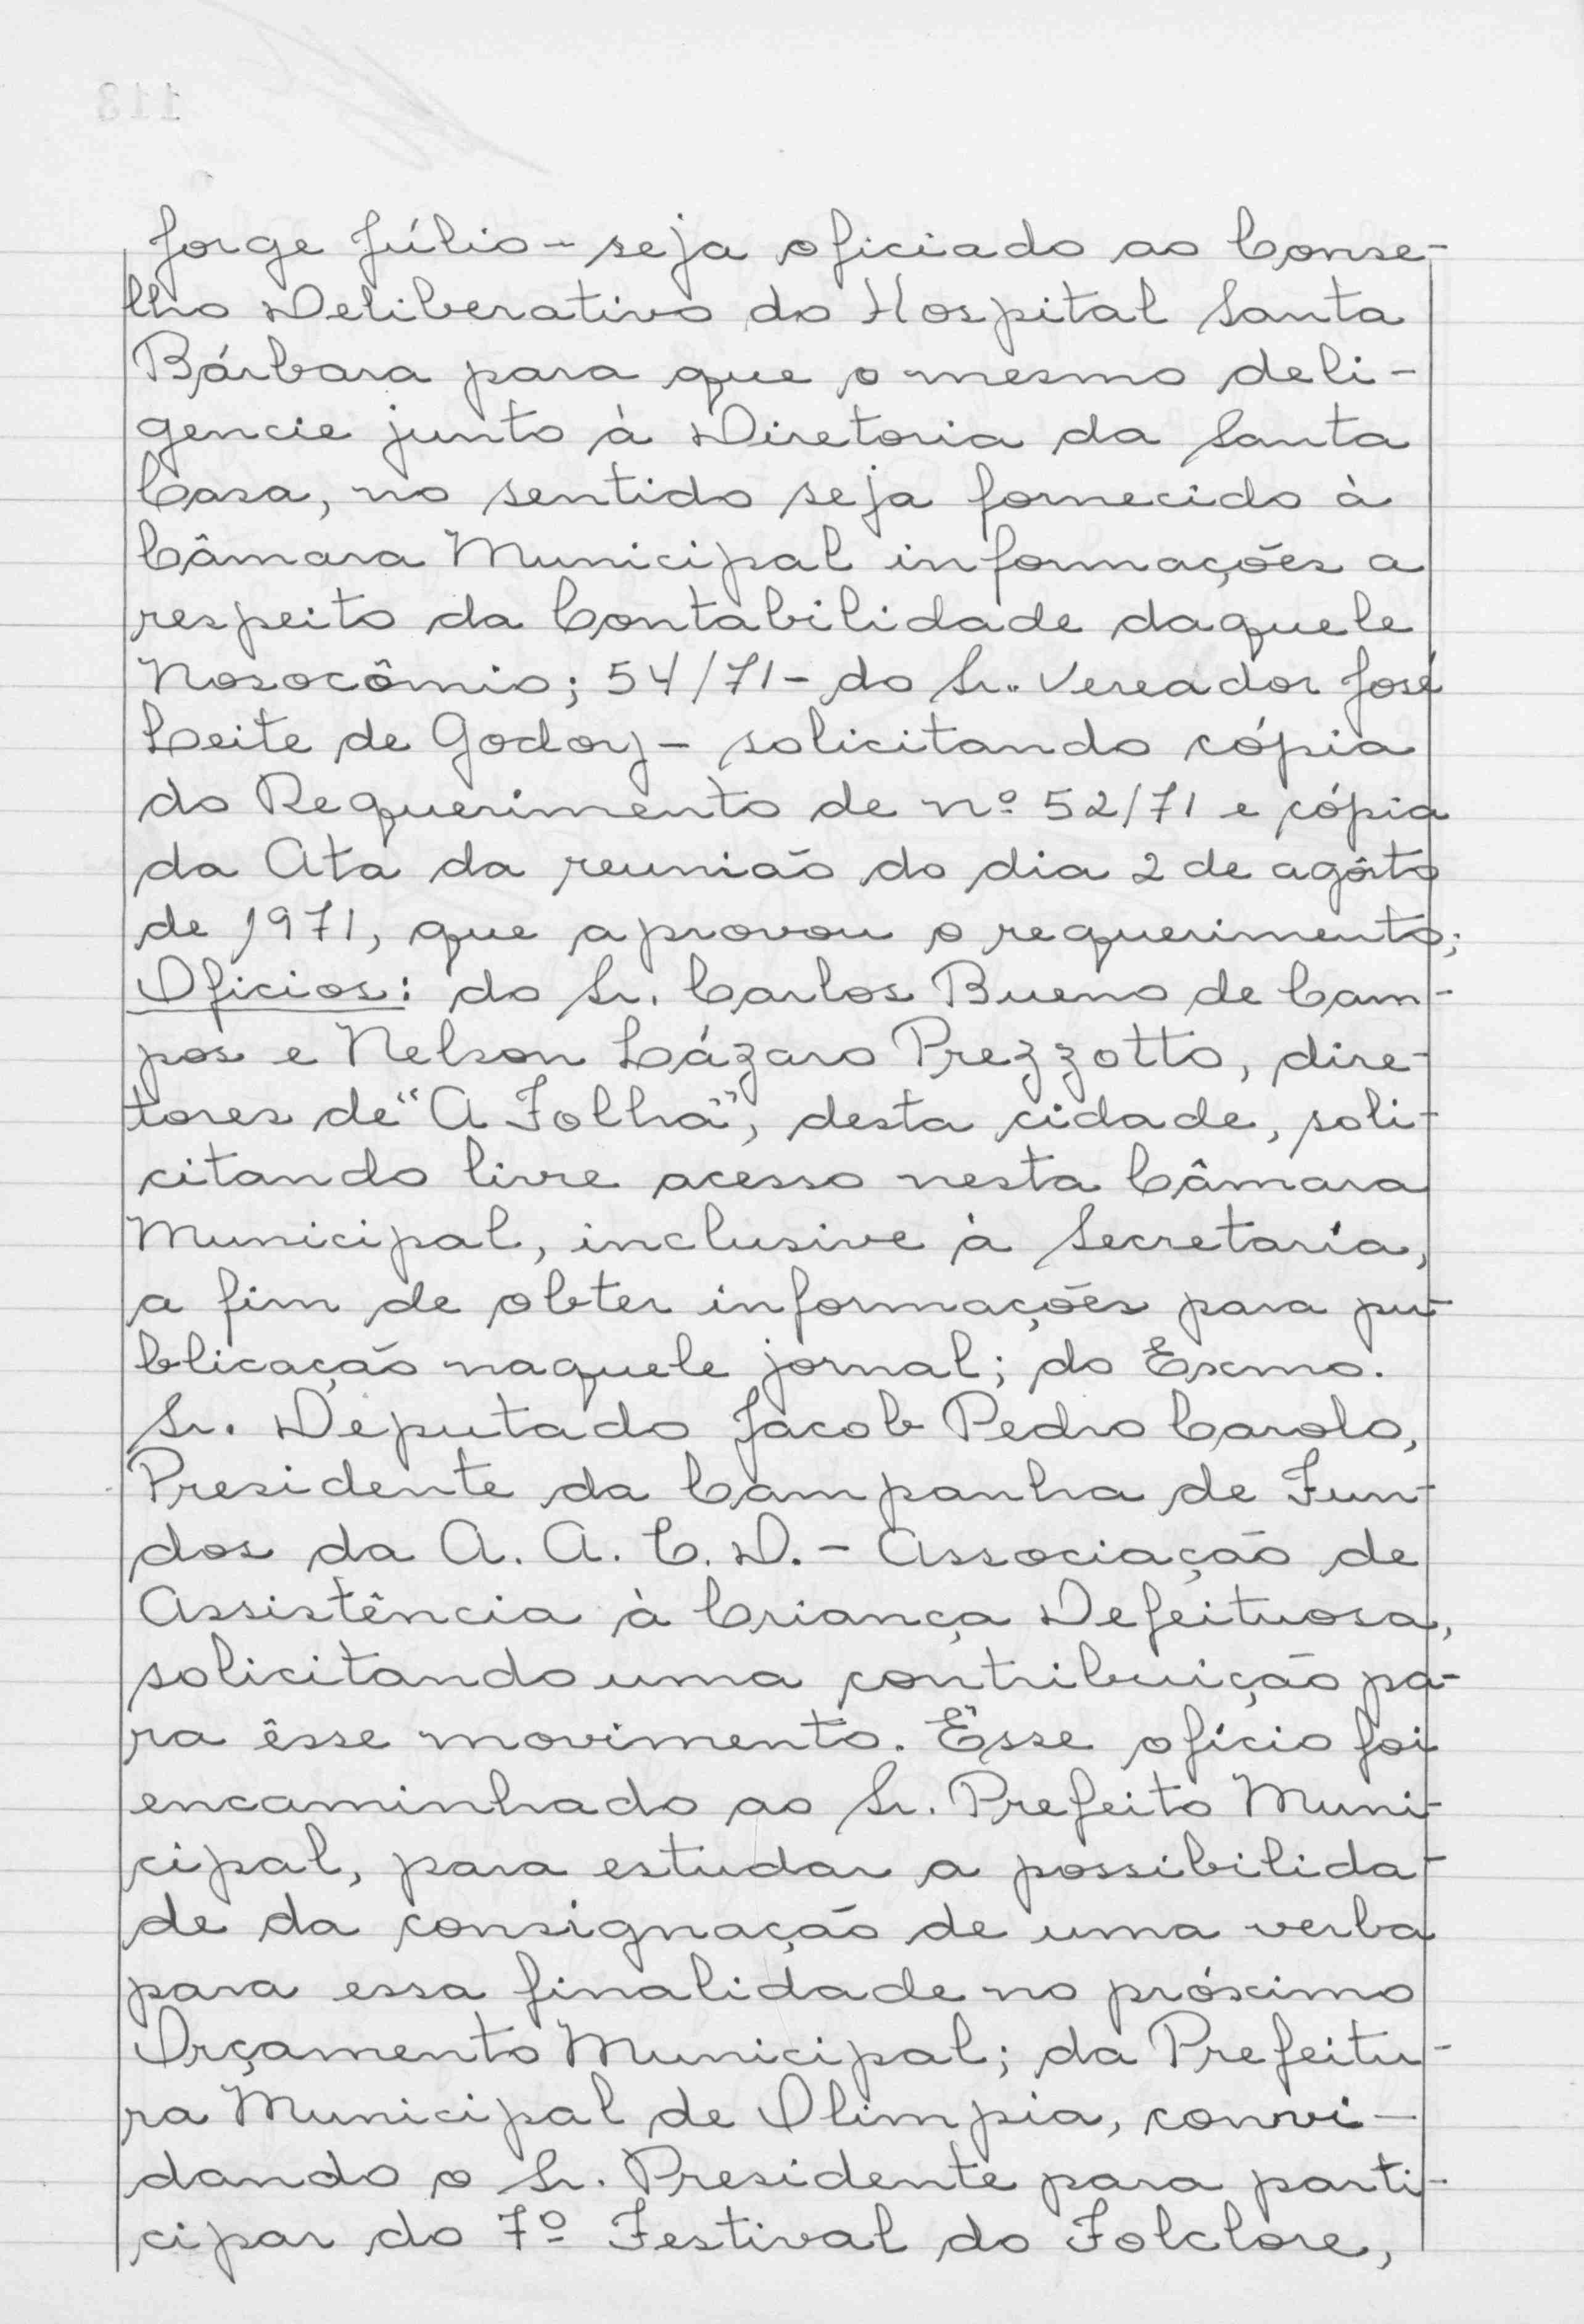 Jorge Júlio - seja oficiado ao Conse-
lho Deliberativo do Hospital Santa
Bárbara para que o mesmo deli-
gencie junto à Diretoria da Santa
Casa, no sentido seja fornecido à
Câmara Municipal informações a
respeito da Contabilidade daquele
Nosocômio; 54/71 - do Sr. Vereador José
Leite de Godoy - solicitando cópia
do Requerimento de nº 52/71 e cópia
da Ata da reunião do dia 2 de agôsto
de 1971, que aprovou o requerimento;
Ofícios: do Sr. Carlos Bueno de Cam-
pos e Nelson Lázaro Prezzotto, dire-
tores de "A Folha", desta cidade, soli-
citando livre acesso nesta Câmara
Municipal, inclusive à Secretaria,
a fim de obter informações para pu-
blicação naquele jornal; do Exmo.
Sr. Deputado Jacob Pedro Carolo,
Presidente da Campanha de Fun-
dos da A. A. C. D. - Associação de
Assistência à Criança Defeituosa,
solicitando uma contribuição pa-
ra êsse movimento. Êsse ofício foi
encaminhado ao Sr. Prefeito Muni-
cipal, para estudar a possibilida-
de da consignação de uma verba
para essa finalidade no próximo
Orçamento Municipal; da Prefeitu-
ra Municipal de Olimpia, convi-
dando o Sr. Presidente para parti-
cipar do 7º Festival do Folclore,